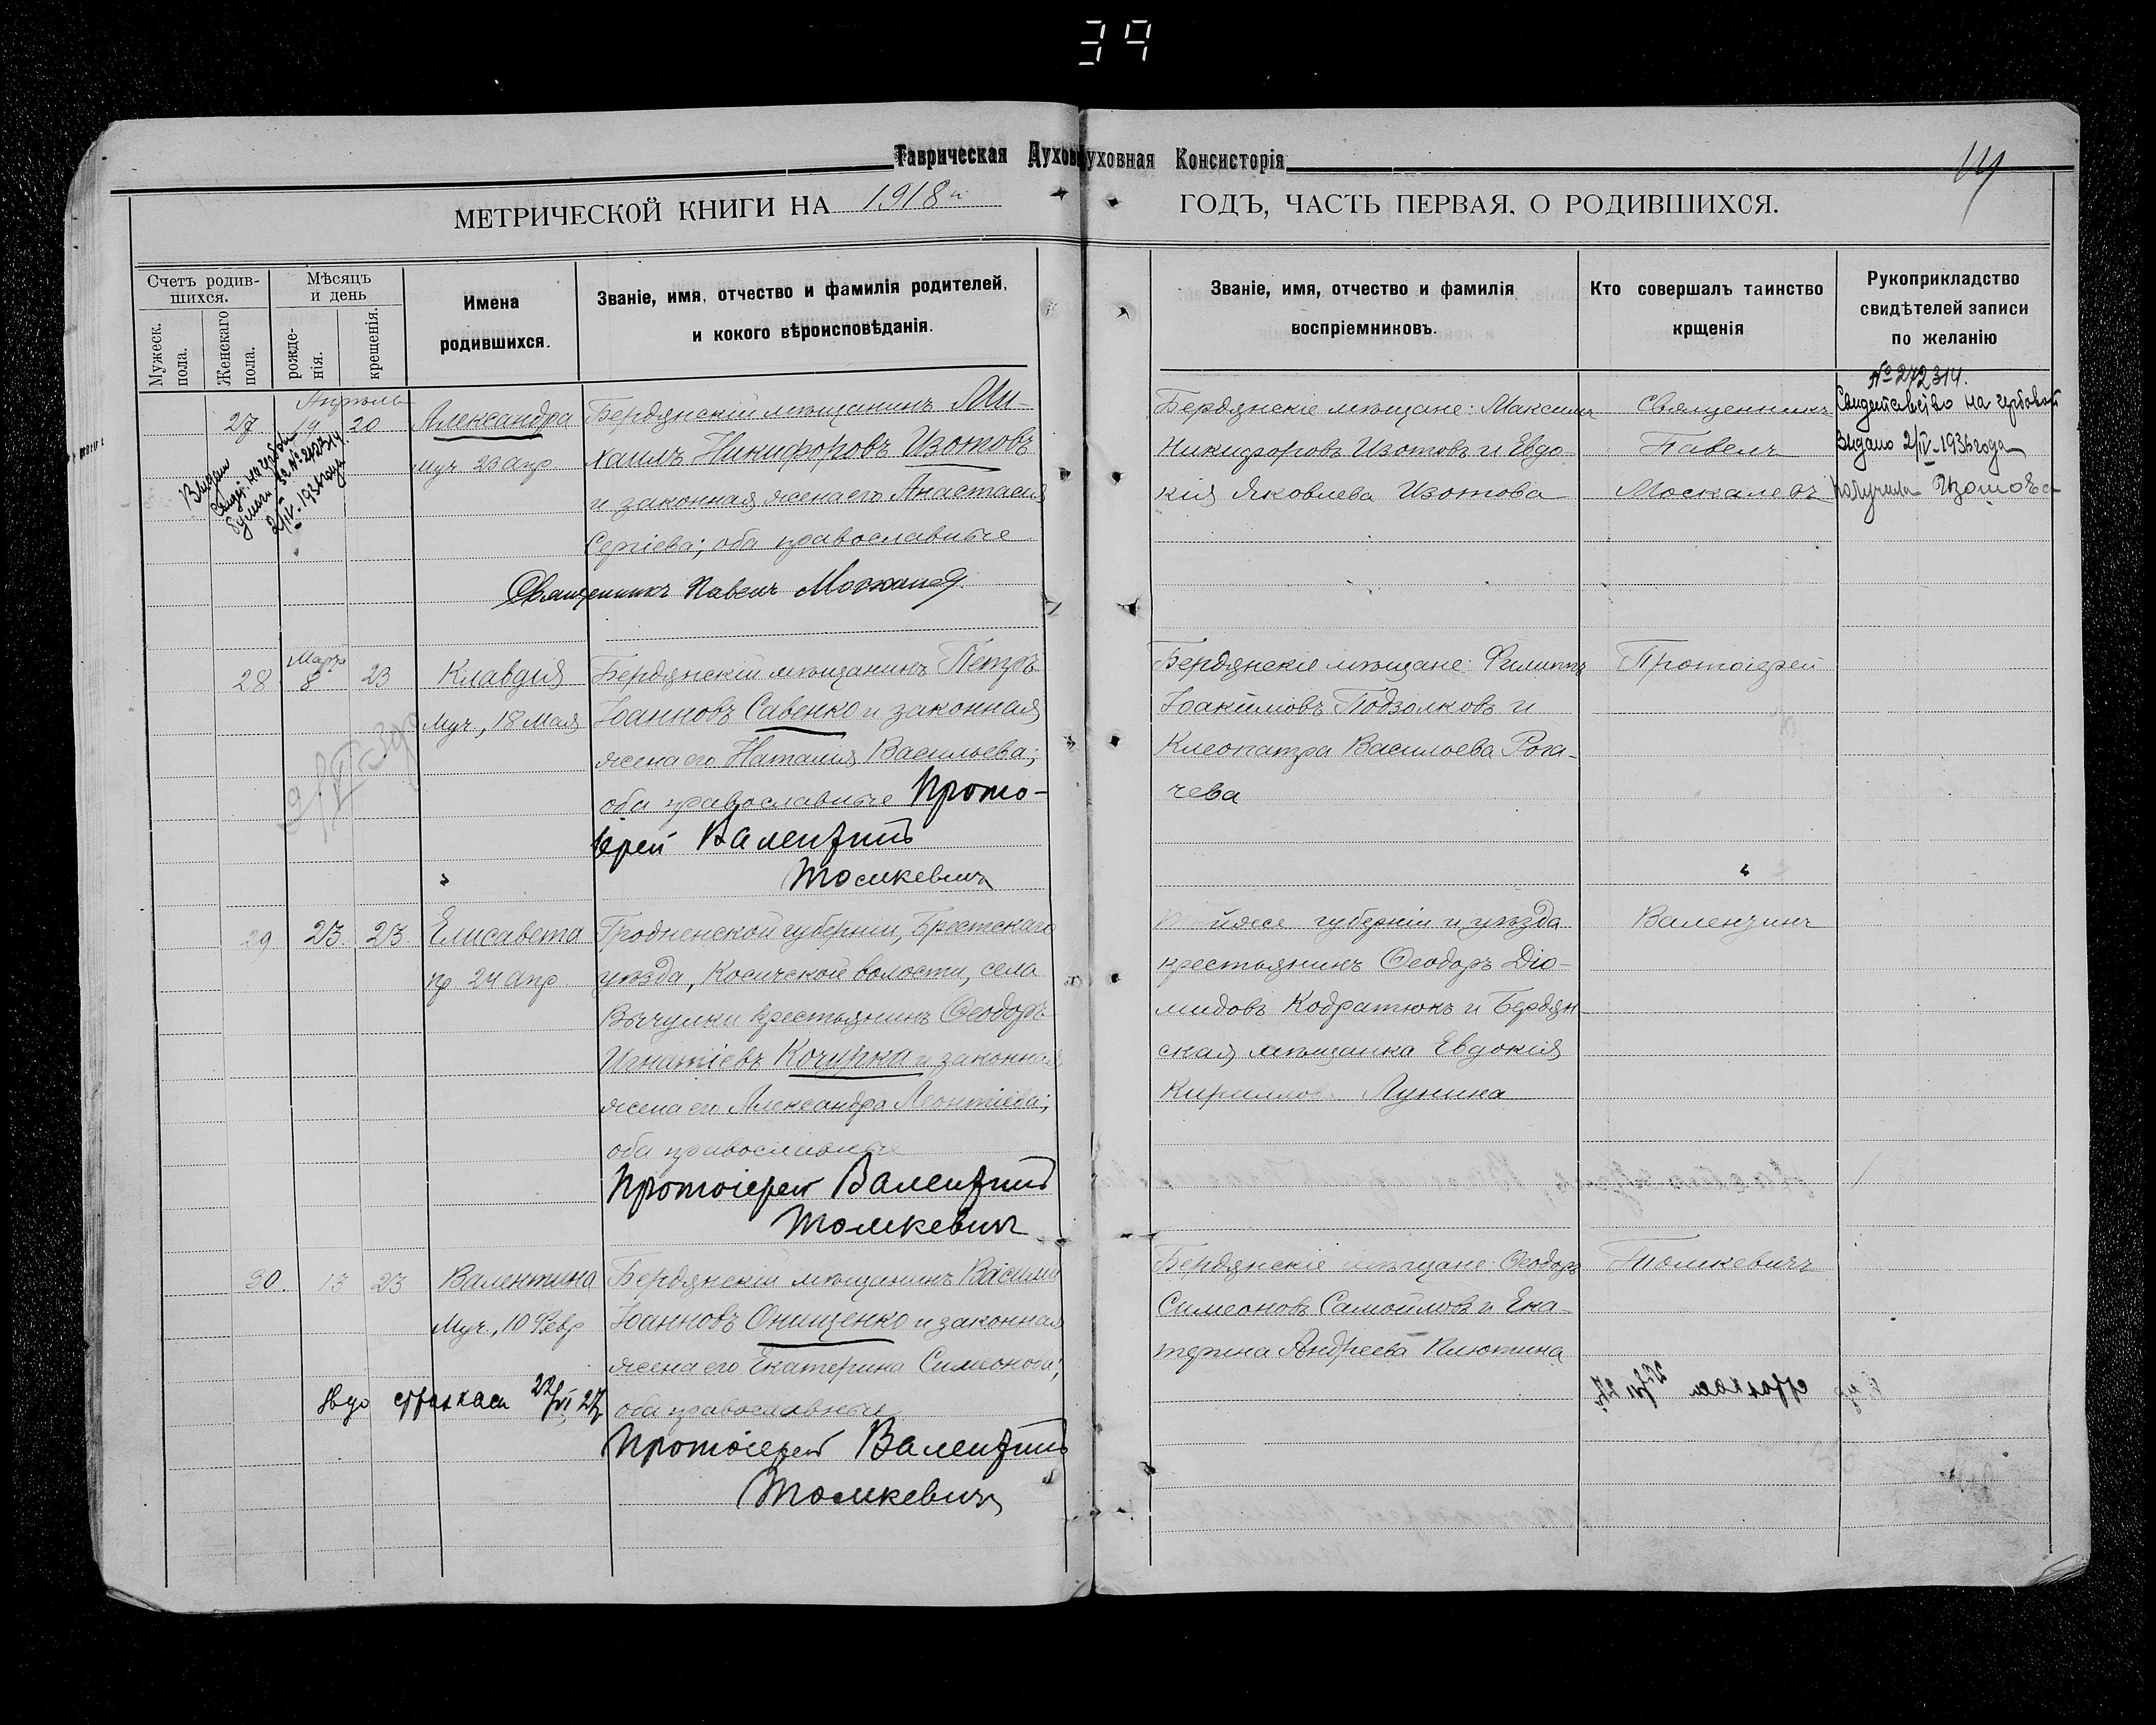 39
Таврическая Духовная Консисторія
МЕТРИЧЕСКОЙ КНИГИ НА 1918й ГОДЪ, ЧАСТЬ ПЕРВАЯ, О РОДИВШИХСЯ.
Счетъ родив-
шихся.
Мужеск. пола.
Женскаго пола.
Мѣсяцъ
и день
рожде-
нія.
крещенія.
Имена
родившихся.
Званіе, имя, отчество и фамилія родителей,
и кокого вѣроисповѣданія.
Званіе, имя, отчество и фамилія
воспріемниковъ.
Кто совершалъ таинство
крщенія
Рукоприкладство
свидѣтелей записи
по желанію
Апрѣль
27 14 20
Александра
муч 23 апр
Бердянскій мѣщанинъ Ми-
хаилъ Никифоровъ Изотовъ
и законная жена его Анастасія
Сергіева; оба православные
Священникъ Павелъ Москалев
Бердянскіе мѣщане: Максим
Никифоровъ Изотовъ и Евдо-
кія Яковлева Изотова
Священникъ
Павелъ
Москалевъ
№ 272314.
Свидетельство на гербовой
Выдано 2/IV-1936 года
получила Изотова
Выдано
2/IV-1936 года
Марта
28 8 23
Клавдія
муч, 18 Мая
Бердянскій мѣщанинъ Петръ
Іоанновъ Савенко и законная
жена его Наталія Васильева;
оба православные Прото-
іерей Валентинъ
Толикевичъ
Бердянскіе мѣщане: Филиппъ
Іоакимовъ Подзолковъ и
Клеопатра Васильева Рога-
чева
Протоіерей
29 23 23
Елисавета
пр 24 апр
Гродненской губерніи, Брестскаго
уѣзда, Косичской волости, села
Вычулки крестьянинъ Ѳеодоръ
Игнатіевъ Кочурка и законная
жена его Александра Леонтіева;
оба православные
Протоіерей Валентинъ
Толикевичъ
Той же губерніи и уѣзда
крестьянинъ Ѳеодоръ Діо-
мидовъ Кодратюкъ и Бердян
ская мѣщанка Евдокія
Кириллова Лунина
Валентинъ
30. 13 23
Валентина
Муч, 10 Февр
Бердянскій мѣщанинъ Василій
Іоанновъ Онищенко и законная
жена его Екатерина Симеонова;
оба православные
Протоіерей Валентинъ
Толикевичъ
Бердянскіе мѣщане: Ѳеодоръ
Симеоновъ Самойловъ и Ека-
терина Андреева Плютина
Толикевичъ
22/VI 27